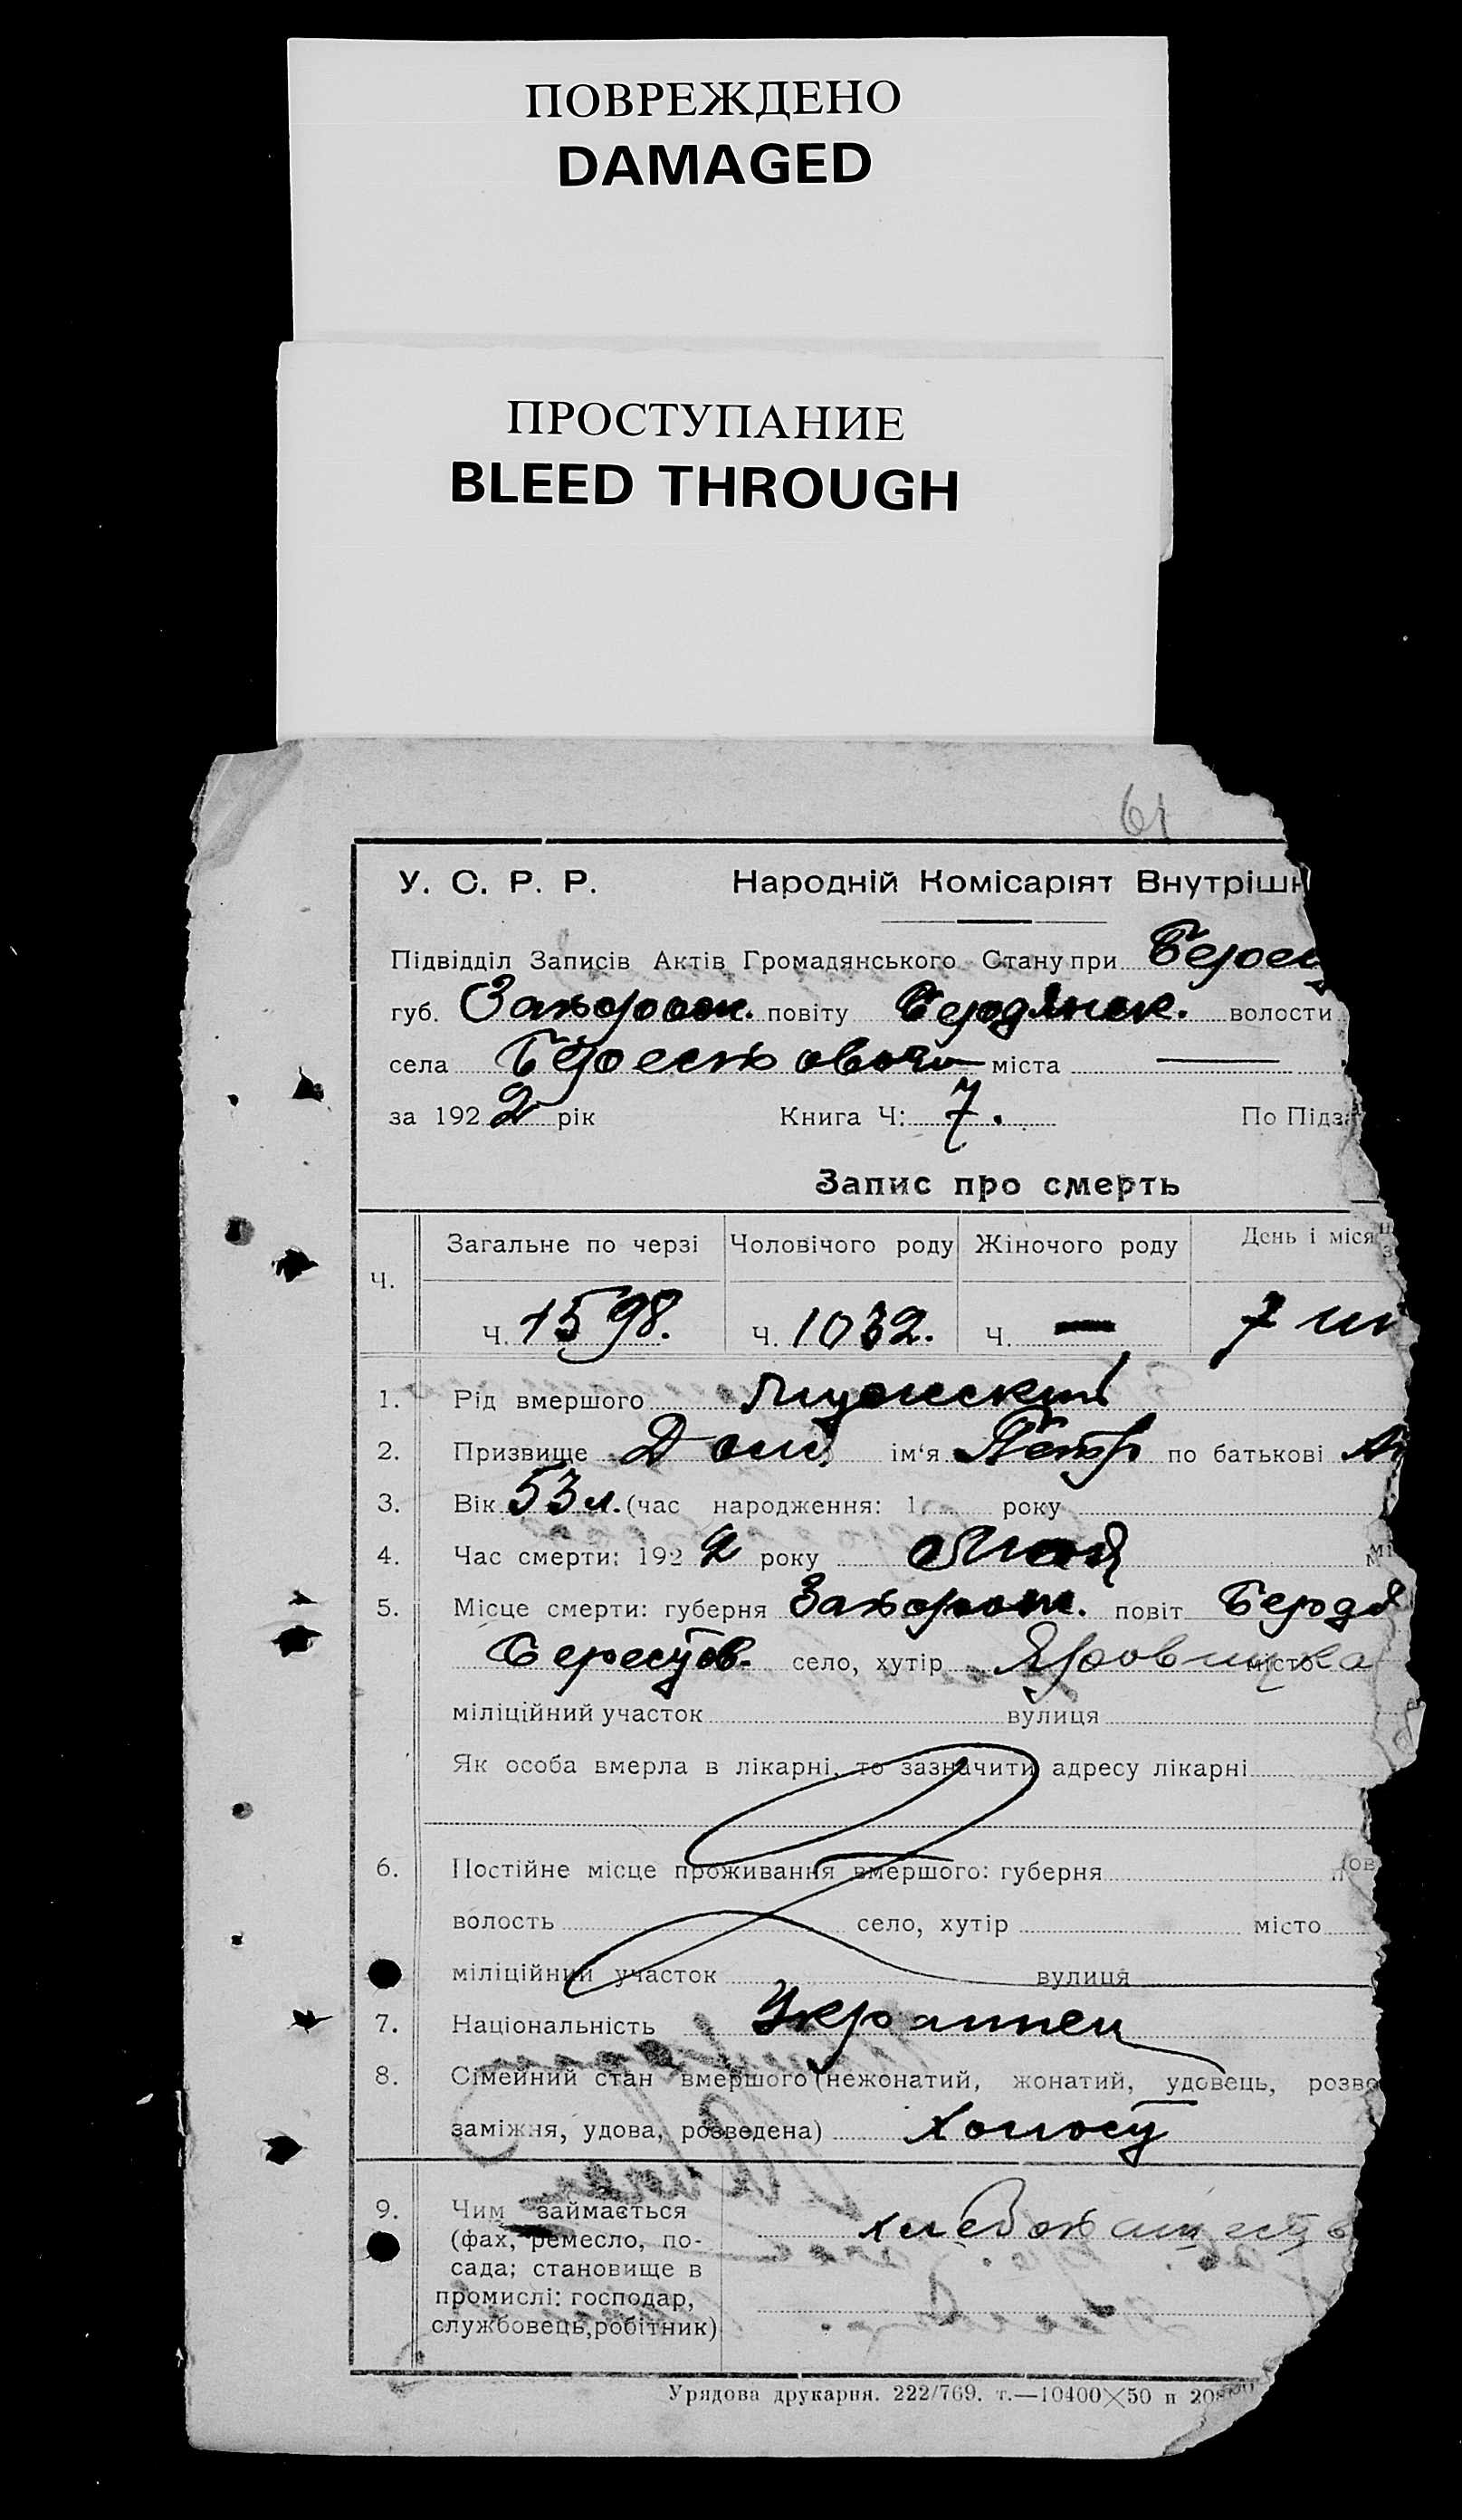 ПОВРЕЖДЕНО
DAMAGED
ПРОСТУПАНИЕ
BLEED THROUGH
61
У. С. Р. Р. Народній Комісаріят Внутрішн
Підвідділ Записів Актів Громадянського Стану при Берест
губ. Запорож. повіту Бердянск. волости
села Берестового міста —
за 1922 рік Книга Ч: 7. По Підза
Запис про смерть
Ч. Загальне по черзі Чоловічого роду Жіночого роду День і міся
Ч. 1598. Ч. 1032. Ч. — 7
1. Рід вмершого Мужеский
2. Призвище ім'я Петр по батькові
3. Вік 53 л. (час народження: 1 року
4. Час смерти: 1922 року Май мі
5. Місце смерти: губерня Запорож. повіт Бердя
Берестов. село, хутір місто
міліційний участок вулиця
Як особа вмерла в лікарні, то зазначити адресу лікарні
6. Постійне місце проживання вмершого: губерня пов
волость село, хутір місто
міліційний участок вулиця
7. Національність Украинец
8. Сімейний стан вмершого (нежонатий, жонатий, удовець, розве
заміжня, удова, розведена) Холост
9. Чим займається хлебопашеств
(фах, ремесло, по-
сада; становище в
промислі: господар,
службовець, робітник)
Урядова друкарня. 222/769. т.—10400×50 п 20